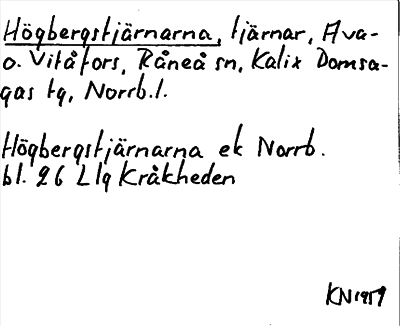 Högbergstjärnarna, tjärnar, Ava-
o. Vitåfors, Råneå sn, Kalix Domsa-
gas tg, Norrb. l.
Högbergstjärnarna ek Norrb.
bl. 26 L lg Kråkheden
KN 1959